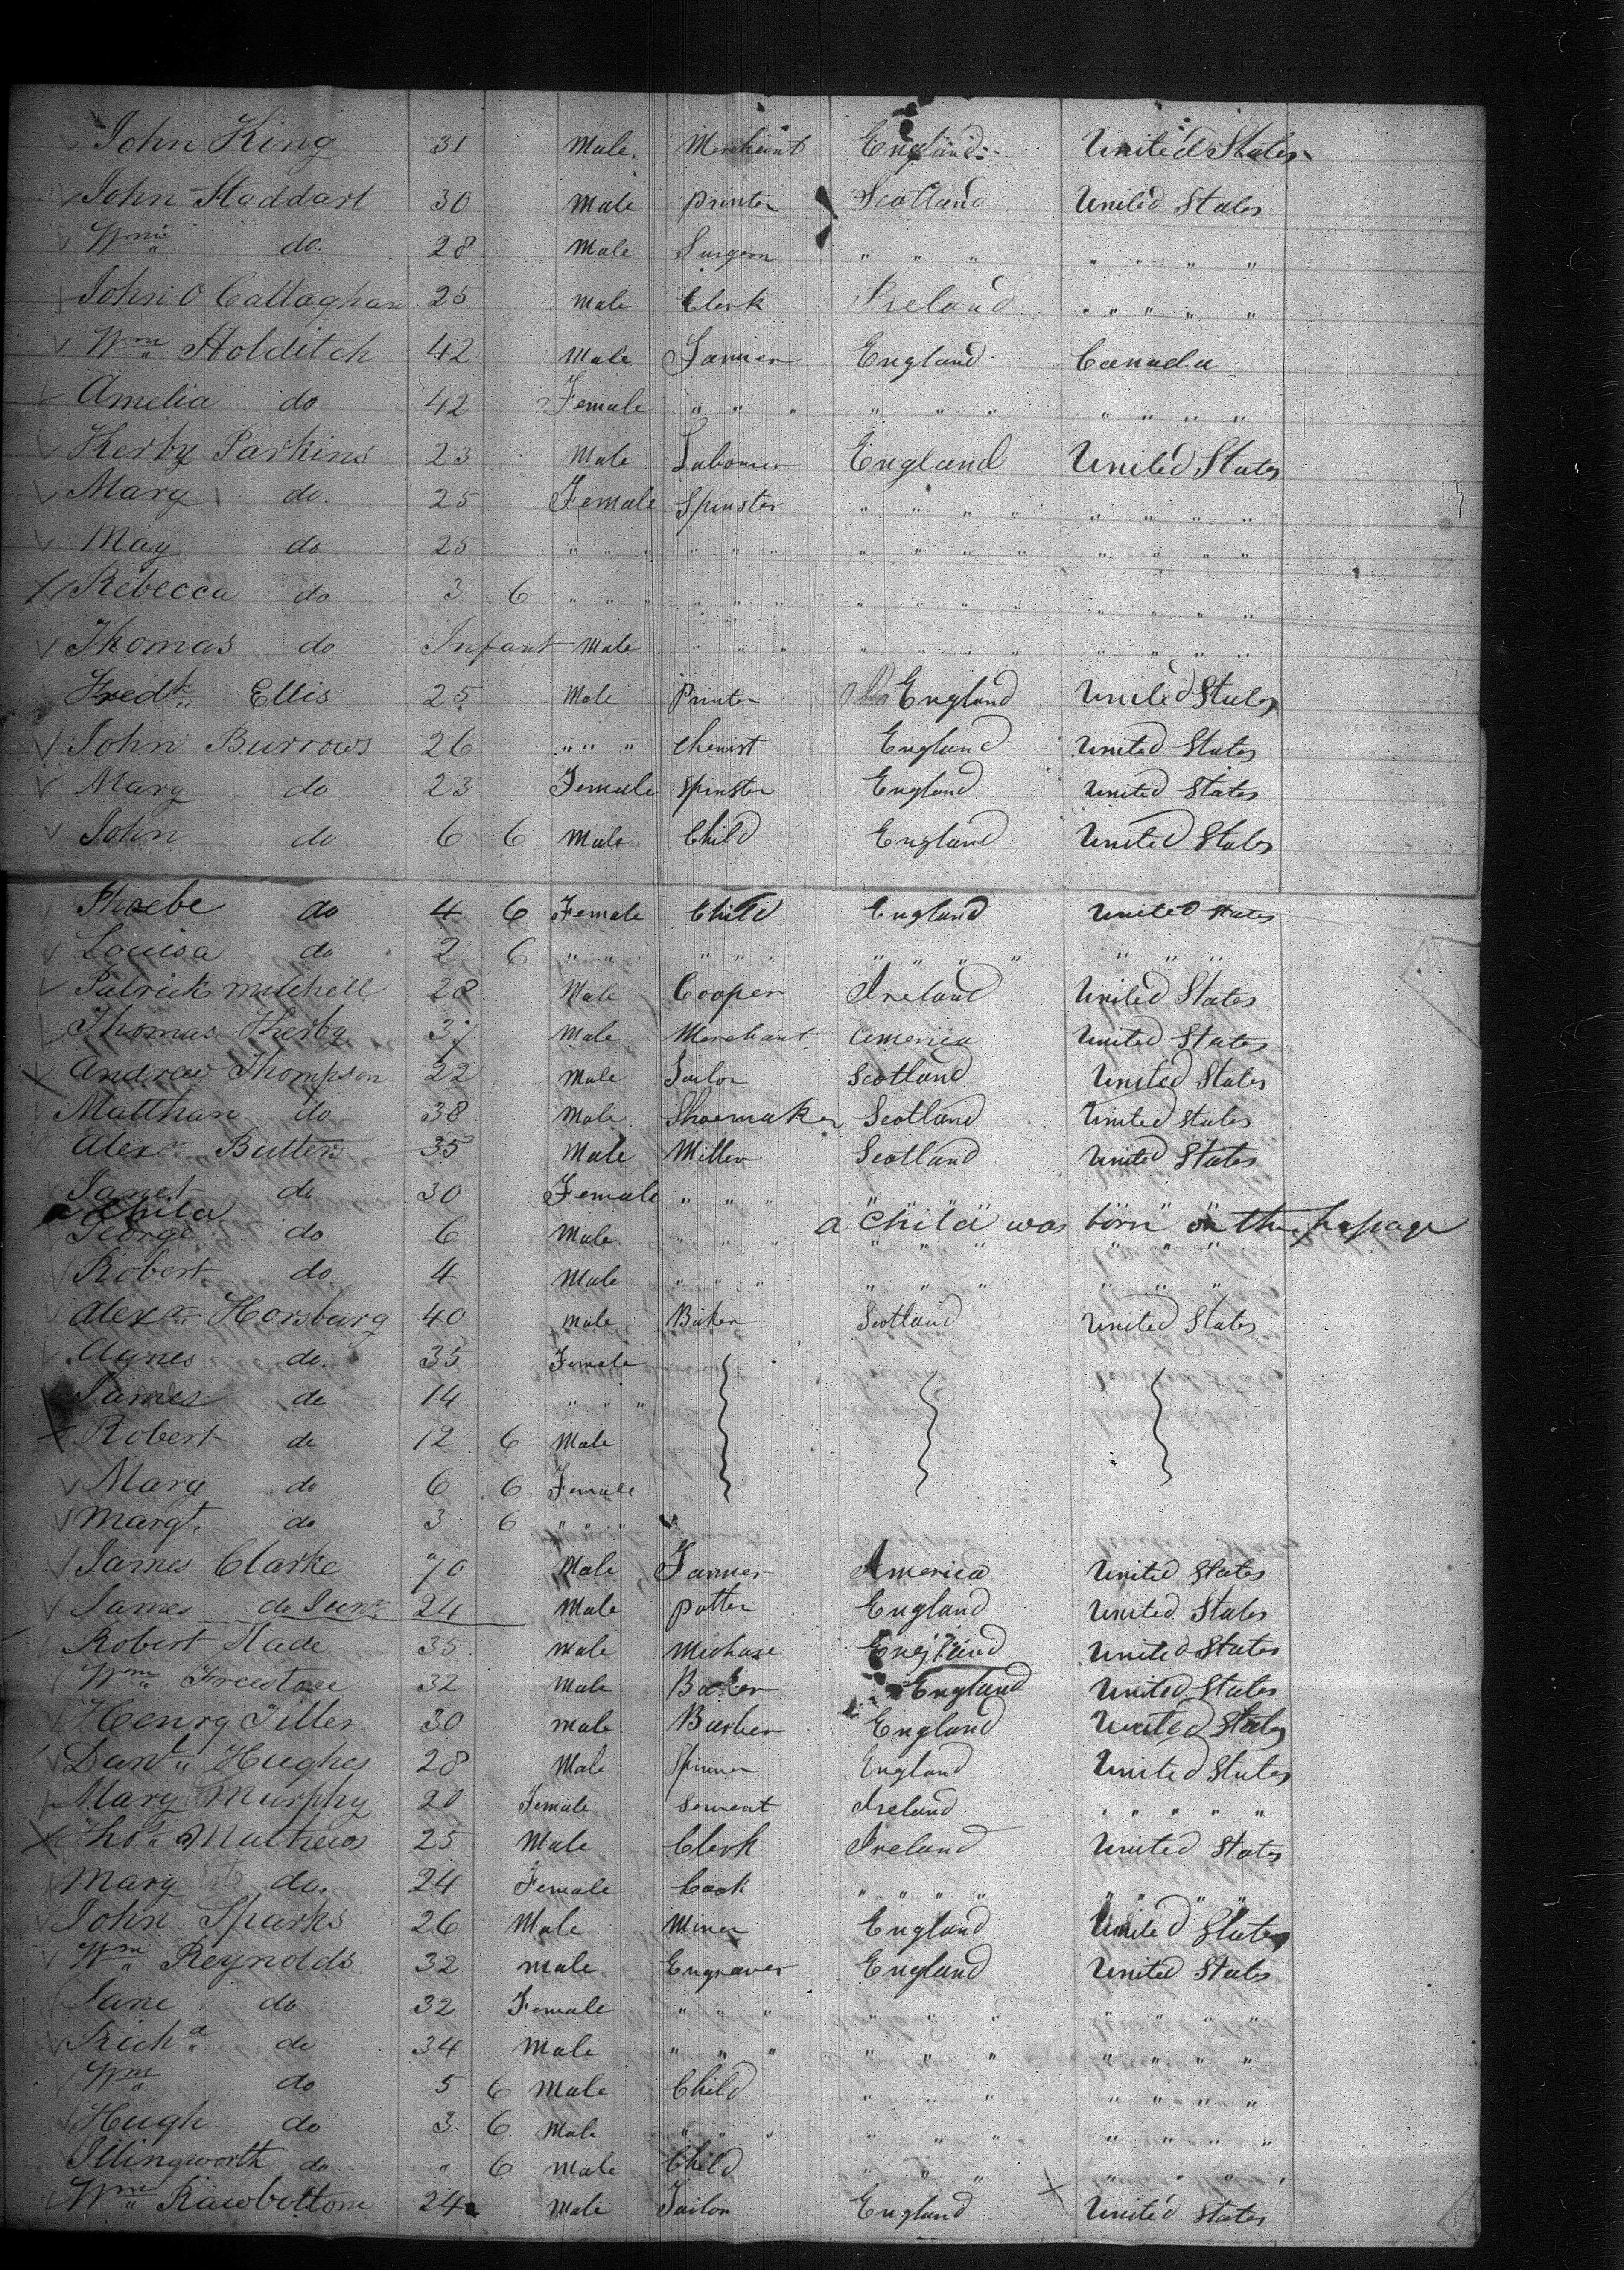 John King 31 Male. Merchant England United States
John Stoddart 30 Male Printer Scotland United States
Wm do. 28 Male Surgeon " " " " " " "
John O Callaghan 25 Male Clerk Ireland " " " " "
Wm Holditch 42 Male Farmer England Canada
Amelia do 42 Female " " " " " " " " " "
Kerby Parkins 23 Male Labourer England United States
Mary do. 25 Female Spinster " " " " " " " "
May do 25 " " " " " " " " " " " " " "
Rebecca do 3 6 " " " " " " " " " " " " " "
Thomas do Infant Male " " " " " " " " " " "
Fredk Ellis 25 Male Printer England United States
John Burrows 26 " " " Chemist England United States
Mary do 23 Female Spinster England United States
John do 6 6 Male Child England United States
Phoebe do 4 6 Female Child England United States
Louisa do 2 6 " " " " " " " " " " " "
Patrick Mitchell 28 Male Cooper Ireland United States
Thomas Kerby 37 Male Merchant America United States
Andrew Thompson 22 Male Sailor Scotland United States
Matthan do 38 Male Shoemaker Scotland United States
Alexr Butters 35 Male Miller Scotland United States
Janet do 30 Female " " " " " "
a Child a Child was born on the passage
George do 6 Male " " " " " " " " "
Robert do 4 Male " " " " " " " " "
Alexr Horsburg 40 Male Baker Scotland United States
Agnes do. 35 Female
James do 14 " " "
Robert do 12 6 Male
Mary do 6 6 Female
Margt. do 3 6 " " "
James Clarke 70 Male Farmer America United States
James do Junr 24 Male Potter England United States
Robert Slade 35 Male England United States
Wm Freestone 32 Male Baker England United States
Henry Tiller 30 Male Barber England United States
Danl Hughes 28 Male Spinner England United States
Mary Murphy 20 Female Servent Ireland " " " " "
Thos Mathews 25 Male Clerk Ireland United States
Mary do. 24 Female Cook " " " " " " " "
John Sparks 26 Male Miner England United States
Wm Reynolds 32 Male Engraver England United States
Jane do 32 Female " " " " " " " " " "
Richd do 34 Male " " " " " " " " " "
Wm do 5 6 Male Child " " " " " " "
Hugh do 3 6 Male " " " " " " " " " "
Illingworth do " 6 Male Child " " " " " "
Wm Rawbottom 24 Male Tailor England United States